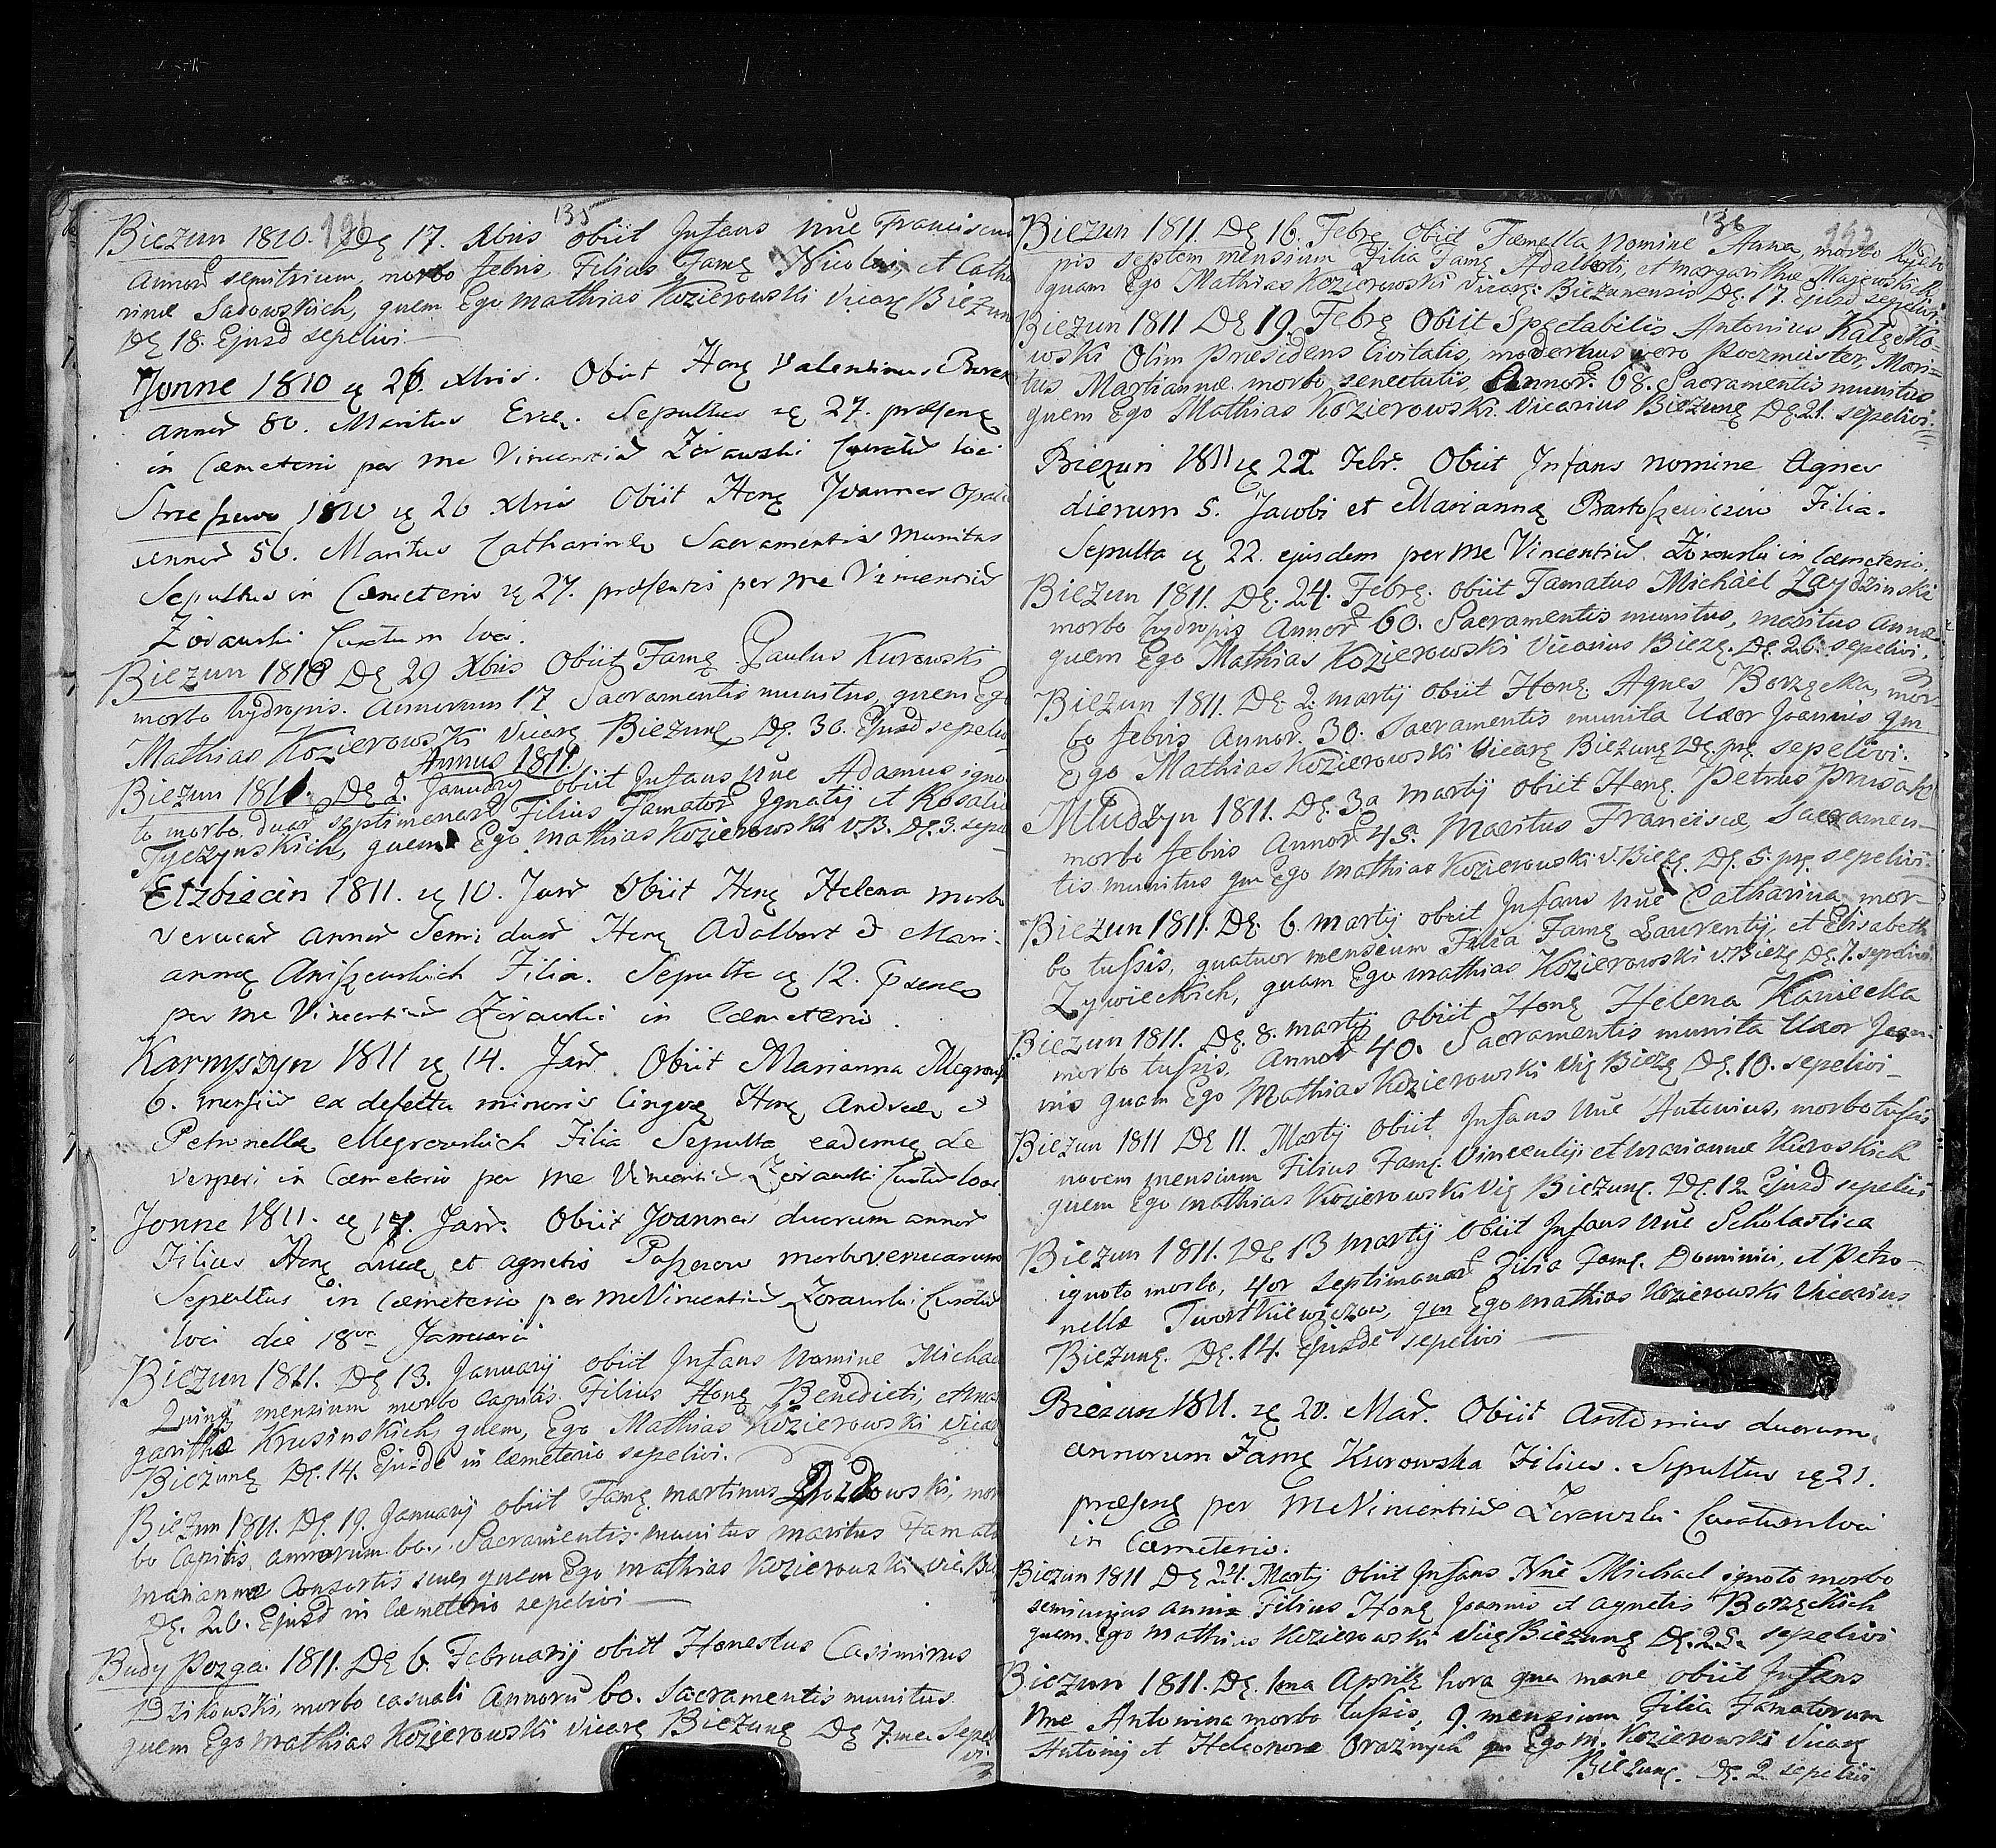 135
Biezun 1810. De 17. Xbris obiit Infans nne Franciscus
Annor semitrium, morbo febris, Filius Famę Nicolai, et Catha
rinæ Sadowskich, quem Ego Mathias Kozierowski Vicarę Biezun
Dę 18. Ejusd sepelivi.
Jonne 1810 ę 26. Xbris. Obiit Honę Valentinus
Annor 80. Maritus Evæ. Sepultus ę 27. præsenę
in Cœmeterio per me Vincentiũ Zórawski Curatũ loci
1810 ę 26 Xbris Obiit Honę Joannes
annor 56. Maritus Catharinæ Sacramentis munitus
Sepultus in Cœmeterio ę 27. præsentis per me Vincentiũ
Zórawski Curatum loci.
Biezun 1810 Dę 29 Xbris Obiit Famę. Paulus Kurowski
morbo hydropis. Annorum 17 Sacramentis munitus, quem Ego
Mathias Kozierowski Vicarę Biezunę Dę. 30. Ejusd sepelivi
Annus 1811.
Biezun 1811. Dę 2. Januarij obiit Infans nne Adamus igno
to morbo, duar septimanar Filius Famator Ignatij et Rosaliæ
Tyczynskich, quem Ego Mathias Kozierowski V.B. Dę. 3. sepe
Elzbiecin 1811. ę 10. Janr Obiit Honę Helena morbo
verucar annor Semi duor Honę Adalbert & Mari-
annę Filia. Sepulta ę 12.
per me Vincentiũ Zórawski in Cœmeterio.
Karnyszyn 1811 ę 14. Janr Obiit Marianna
6. mensiũ ex defectu minoris linguę Honę Andreæ &
Petronellæ Megrowskich Filia Sepulta eademę die
vesperi in Cœmeterio per me Vincentiũ Zórawski Curatũ loci
Jonne 1811. ę 17. Janr. Obiit Joannes duorum annor
Filius Honę Lucæ et Agnetis morbo verucarum
Sepultus in Cœmeterio per me Vincentiũ Zórawski Curatũ
loci die 18va Januarii
Biezun 1811. Dę 13. Januarij obiit Infans Nomine Michael
Quinq mensium morbo capitis. Filius Honę Benedicti, et Mar
garithæ Krusinskich, quem, Ego Mathias Kozierowski Vicarę
Biezunę Dę. 14. Ejusde in cœmeterio sepelivi.
Biezun 1811. Dę. 19. Januarij obiit Famę. Martinus mor
bo Capitis, annorum 60. Sacramentis munitus maritus Famatæ
Mariannæ Consortis suæ, quem Ego Mathias Kozierowski Vic. Bie
Dę. 20. Ejusd in Cœmeterio sepelivi
Budy Pozga. 1811. Dę 6. Februarij obiit Honestus Casimirus
Dzikowski, morbo casuali Annorũ 60. Sacramentis munitus
quem Ego Mathias Kozierowski Vicarę Biezunę Dę 7mæ Sepeli
vi.
136
Biezun 1811. Dę 16. Febrę Obiit Fœmella Nomine Anna, morbo hydro
pis septem mensium Filia Famę Adalberti, et Margarithæ Majewskich
quam Ego Mathias Kozierowski Vicarę. Biezunensis Dę. 17. Ejusd sepelivi.
Biezun 1811 Dę 19. Febrę Obiit Spectabilis Antonius
wski Olim Præsidens Civitatis, modernus vero Poczmeister, Mari=
tus Mariannæ. morbo senectutis, Annor. 68. Sacramentis munitus
quem Ego Mathias Kozierowski. Vicarius Biezunę Dę 21. sepelivi.
Biezun 1811 ę 22. Febr. Obiit Infans nomine Agnes
dierum 5. Jacobi et Mariannę Filia.
Sepulta ę 22. ejusdem per me Vincentiũ Zórawski in Cæmeterio.
Biezun 1811. Dę. 24. Febrę. obiit Famatus Michael
morbo hydropis Annor 60. Sacramentis munitus, maritus Annæ
quem Ego Mathias Kozierowski Vicarius Biezę. Dę 26. sepelivi.
Biezun 1811. Dę. 2. Martij obiit Honę. Agnes Borzęcka, mor-
bo febris Annor. 30. Sacramentis munita Uxor Joannis qm
Ego Mathias Kozierowski Vicarę Biezunę Dę. prę. sepelivi.
Mludzyn 1811. Dę. 3a Martij obiit Honę. Petrus Prusak
morbo febris Annor 45. Maritus Franciscæ Sacramen-
tis munitus qm Ego Mathias Kozierowski V. Biezę. Dę. 5. prę. sepelivi.
Biezun 1811. Dę. 6. Martij obiit Infans nne Catharina mor-
bo tussis, quatuor mensium Filia Famę Laurentij, et Elisabeth
Zywieckich, quam Ego Mathias Kozierowski V. Biezę Dę. 7. sepelivi.
Biezun 1811. Dę. 8. Martij obiit Honę Helena Kaniecka
morbo tussis, Annor 40. Sacramentis munita Uxor Joan-
nis quam Ego Mathias Kozierowski Vię Biezę Dę. 10. sepelivi-
Biezun 1811 Dę 11. Martij Obiit Infans Nne Antonius, morbo tussis
novem mensium Filius Famę. Vincentij et Mariannæ Kuroskich
quem Ego Mathias Kozierowski Vię Biezunę. Dę. 12. Ejusd sepelivi
Biezun 1811. Dę 13 Martij Obiit Infans Nne Scholastica
ignoto morbo, 4or septimanar Filia Famę. Dominici, et Petro-
nellæ qm Ego Mathias Kozierowski Vicarius
Biezunę. Dę. 14. Ejusde sepelivi
Biezun 1811. ę 20. Mar. Obiit Antonius duorum
annorum Famę Kurowska Filius. Sepultus ę 21.
præsenę per me Vincentiũ Zórawski Curatum loci
in Cœmeterio.
Biezun 1811 Dę 24. Martij Obiit Infans Nne Michael ignoto morbo
semiunius anni Filius Honę Joannis et Agnetis Borzęckich
quem Ego Mathias Kozierowski Vię Biezunę Dę. 25. sepelivi
Biezun 1811. Dę. 1ma Aprilę hora mane obiit Infans
Nne Antonina morbo tussis, 9. mensium Filia Famatorum
Antonij et Heleonoræ qm Ego M. Kozierowski Vicarę
Biezunę. Dę. 2 sepelivi